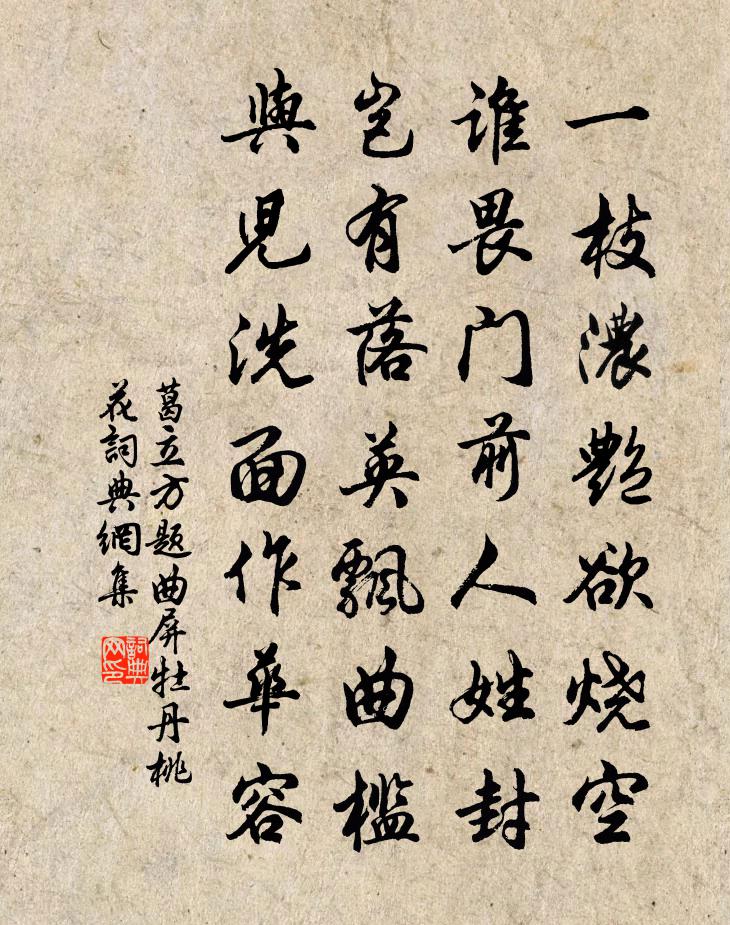 一枝濃艷欲烧空
谁畏门前人姓封
岂有落英飘曲槛
與児洗面作華容
葛立方题曲屏牡丹桃
花詞典網集
詞典
网印